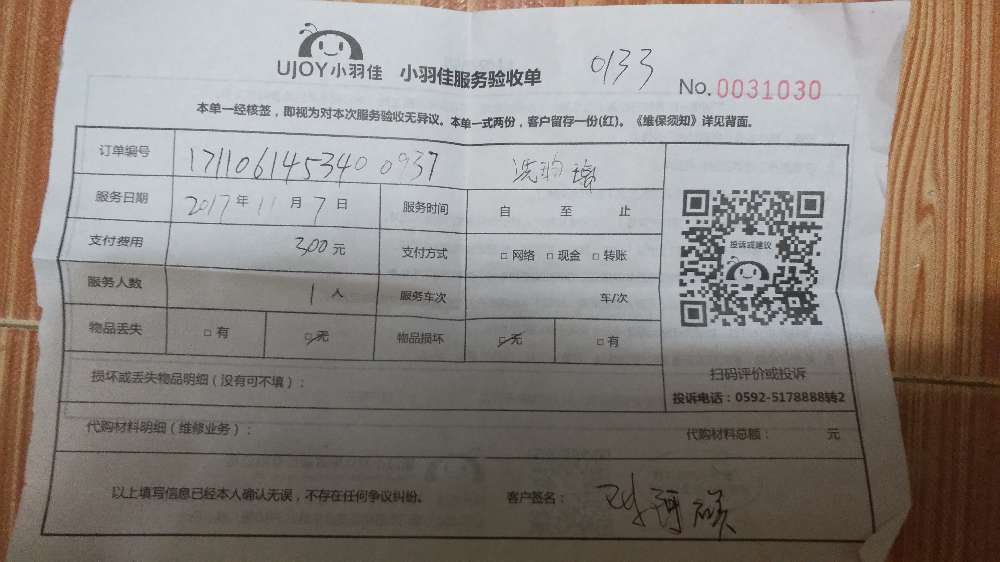 UJOY小羽佳 小羽佳服务验收单 0133 No.0031030
本单一经核签，即视为对本次服务验收无异议。本单一式两份，客户留存一份(红)。《维保须知》详见背面。
订单编号 1711061453400937
服务日期 2017年11月7日 服务时间 自 至 止
投诉或建议
支付费用 300元 支付方式 □网络 □现金 □转账
服务人数 1人 服务车次 车/次
物品丢失 □有 □无 物品损坏 □无 □有
扫码评价或投诉
损坏或丢失物品明细（没有可不填）：
投诉电话：0592-5178888转2
代购材料明细（维修业务）： 代购材料总额： 元
以上填写信息已经本人确认无误，不存在任何争议纠纷。 客户签名：